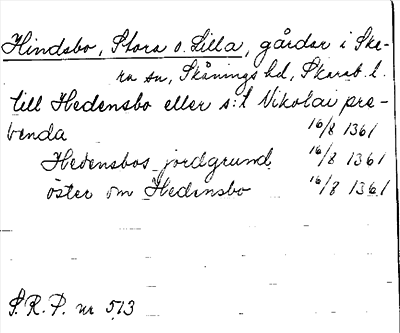 Hindsbo, Stora o. Lilla, gårdar i Ska-
ra sn, Skånings hd, Skarab. l.
till Hedensbo eller s:t Nikolai pre-
benda 16/8 1361
Hedensbos jordgrund 16/8 1361
öster om Hedensbo 16/8 1361
S.R.P. nr 513